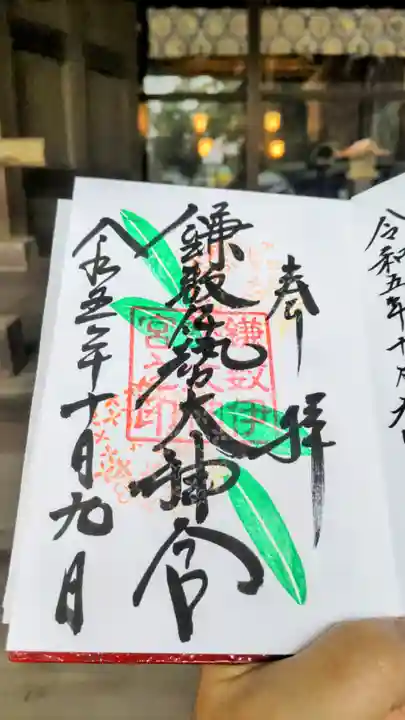 令和五年十月九日
奉拝
鎌数伊勢大神宮
令和五年十月九日
鎌数伊
勢大神
宮之印